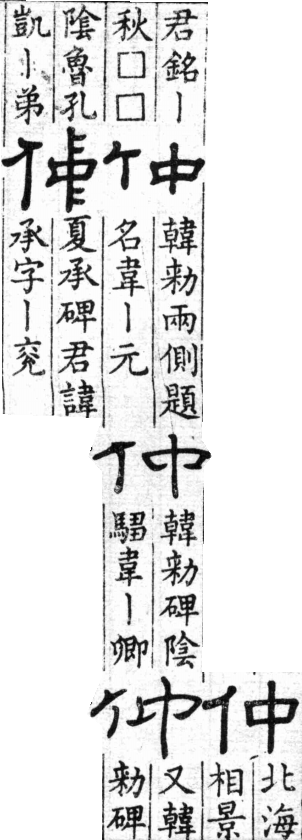 仲
北海
相景
君銘丨
秋□□
仲
又韓
勑碑
陰魯孔
凱丨弟
仲
韓勑碑陰
騶韋丨卿
仲
韓勑兩側題
名韋丨元
仲
夏承碑君諱
承字丨兖